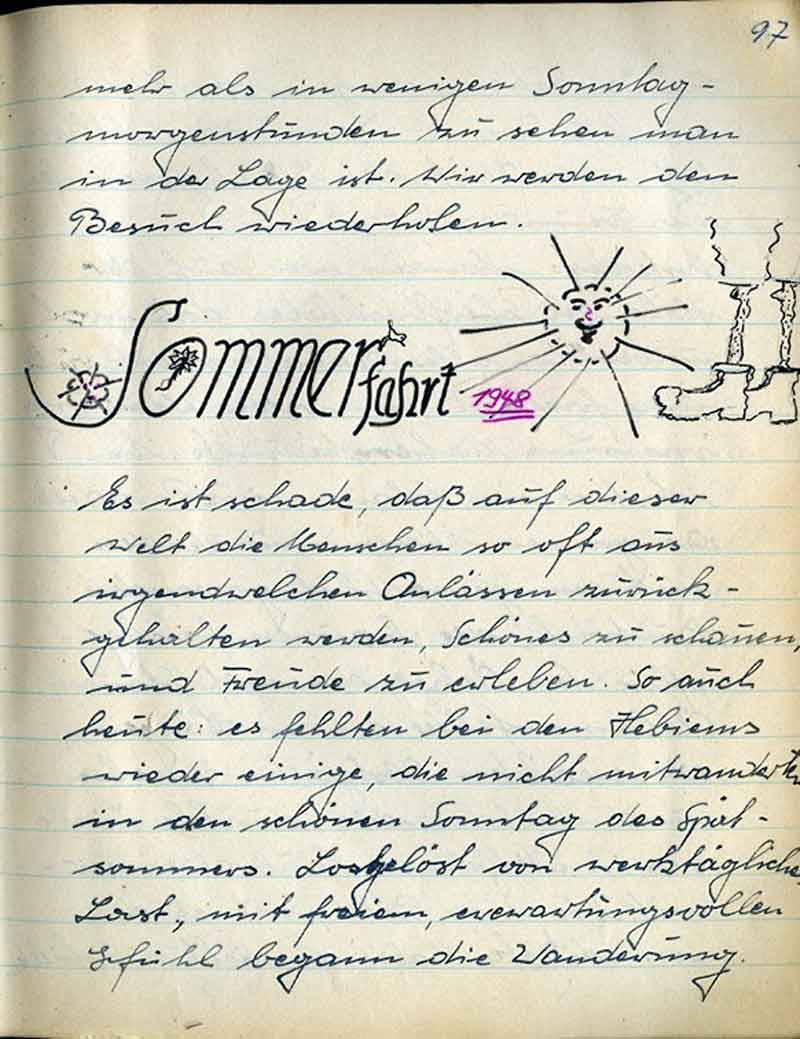 97
mehr als in wenigen Sonntag-
morgenstunden zu sehen man
in der Lage ist. Wir werden den
Besuch wiederholen.
Sommerfahrt 1948
Es ist schade, daß auf dieser
Welt die Menschen so oft aus
irgendwelchen Anlässen zurück-
gehalten werden, Schönes zu schauen,
und Freude zu erleben. So auch
heute: es fehlten bei den Hebiems
wieder einige, die nicht mitwanderten
in den schönen Sonntag des Spät-
sommers. Losgelöst von werktägliche
Last, mit freiem, erwartungsvollen
Gfühl begann die Wanderung.